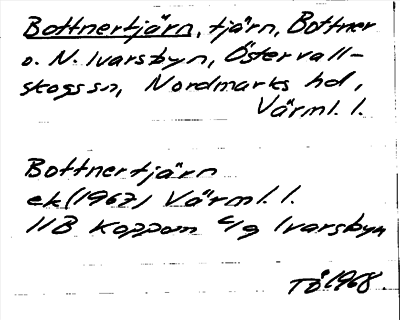 Bottnertjärn, tjärn, Bottner
o. N. Ivarsbyn, Östervall-
skogs sn, Nordmarks hd,
Värml. l.
Bottnertjärn
ek (1967) Värml. l.
11B Koppom 4/g Ivarsbyn
TÖ 1968.